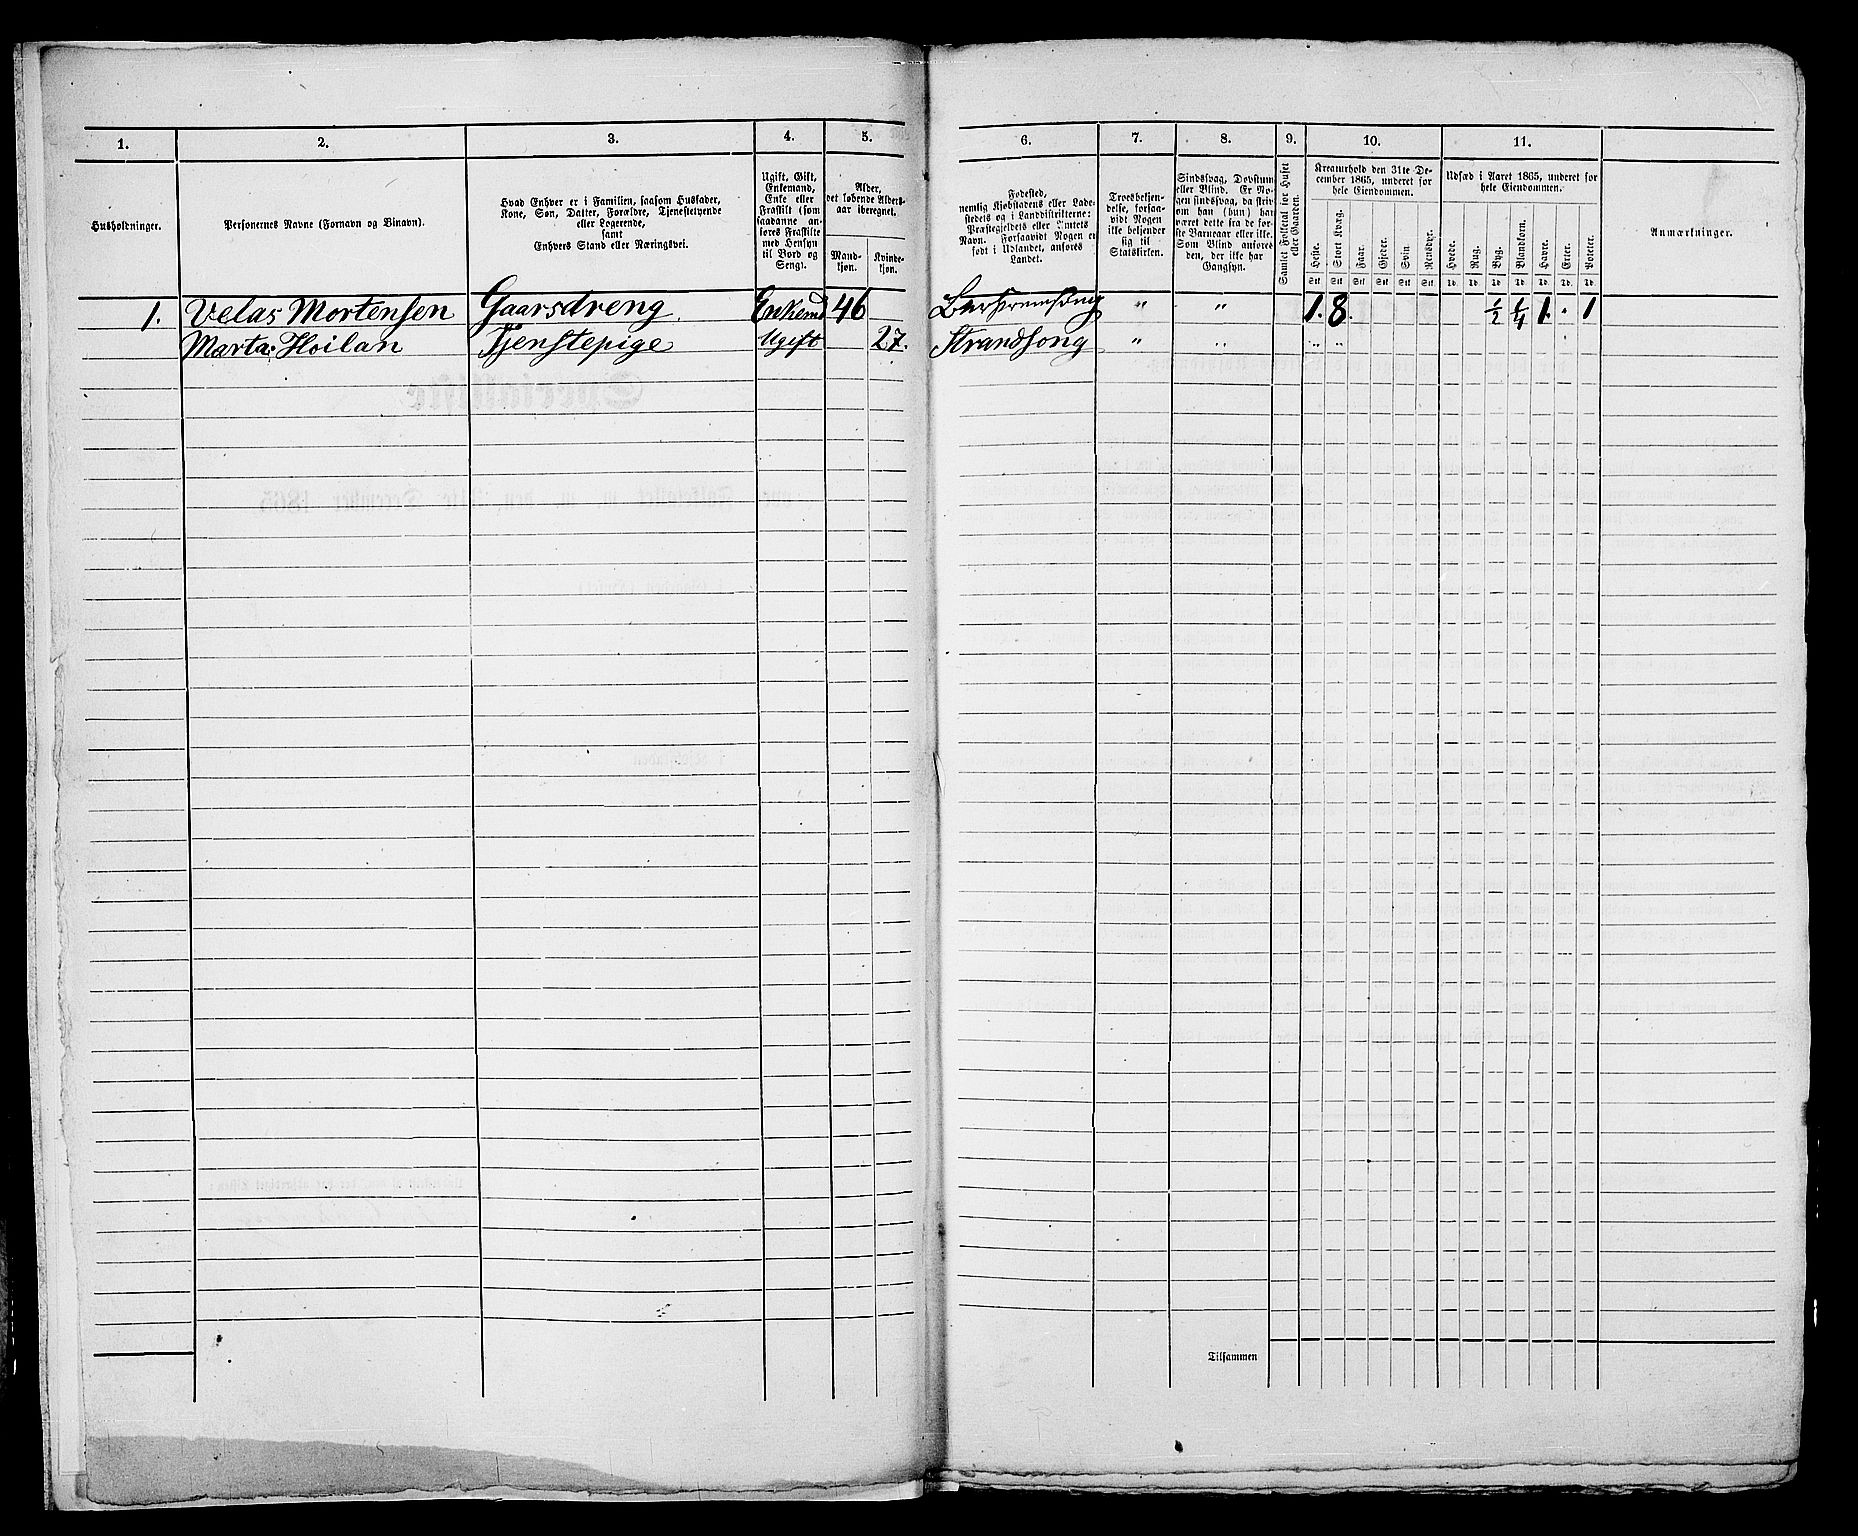 1.
2.
3.
4.
5.
6.
7.
8.
9.
10.
11.
Husholdninger.
Personernes Navne (Fornavn og Binavn).
Hvad Enhver er i Familien, saasom Husfader,
Kone, Søn, Datter, Forældre, Tjenestetyende
eller Logerende,
samt
Enhvers Stand eller Næringsvei.
Ugift, Gift,
Enkemand,
Enke eller
Fraskilt (som
saadanne an-
føres Fraskilte
med Hensyn
til Bord og
Seng).
Alder,
det løbende Alders-
aar iberegnet.
Mand-
kjøn.
Kvinde-
kjøn.
Fødested,
nemlig Kjøbstadens eller Lade-
stedets og i Landdistrikterne:
Præstegjeldets eller Amtets
Navn. Forsaavidt Nogen er
født i Udlandet, anføres
Landet.
Troesbekjen-
delse, forsaa-
vidt Nogen
ikke bekjender
sig til
Statskirken.
Sindssvag, Døvstum
eller Blind. Er No-
gen sindssvag, da skriv
om han (hun) har
været dette fra de før-
ste Barneaar eller ikke.
Som Blind anføres
den, der ikke har
Gangsyn.
Samlet Folketal for Huset
eller Gaarden.
Kreaturhold den 31te De-
cember 1865, underet for
hele Eiendommen.
Heste.
Stort Kvæg.
Faar.
Gjeder.
Svin.
Rensdyr.
Stk Stk Stk Stk Stk Stk
Udsæd i Aaret 1865, underet for
hele Eiendommen.
Hvede.
Rug.
Byg.
Blandkorn.
Havre.
Erter.
Poteter.
Td. Td. Td. Td. Td. Td. Td.
Anmærkninger.
1. Velas Mortensen Gaarsdreng. Enkemd 46 " " 1. 8. 1/2 1/4 1. . 1
Marta Hoilan Tjenstepige Ugift 27. Strandsong " " " "
Tilsammen